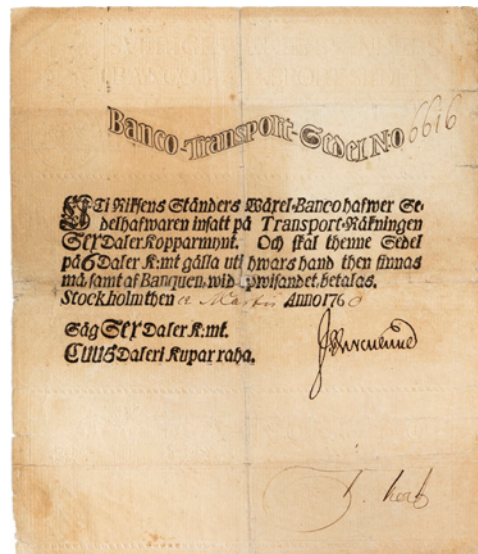 Banco-Transport-Sedel No 6616
Uti Riksens Ständers Wäxel-Banco hafwer Se-
delhafwaren insatt på Transport-Räkningen
Sex Daler Kopparmynt. Och skal thenne Sedel
på 6 Daler K:mt gälla uti hwars hand then finnas
må, samt af Banquen, wid upwisandet, betalas.
Stockholm then Martii Anno 1760
Säg Sex Daler K:mt.
CUUS Daleri Kupar raha.